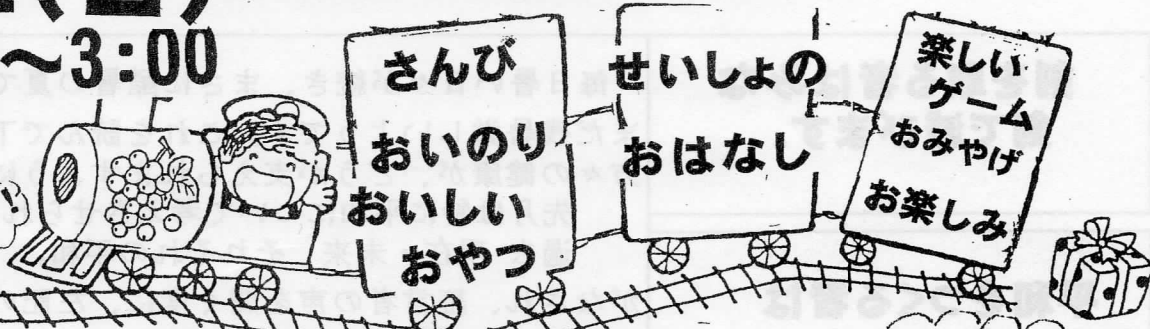 ～3:00
さんび
おいのり
おいしい
おやつ
せいしょの
おはなし
楽しい
ゲーム
おみやげ
お楽しみ